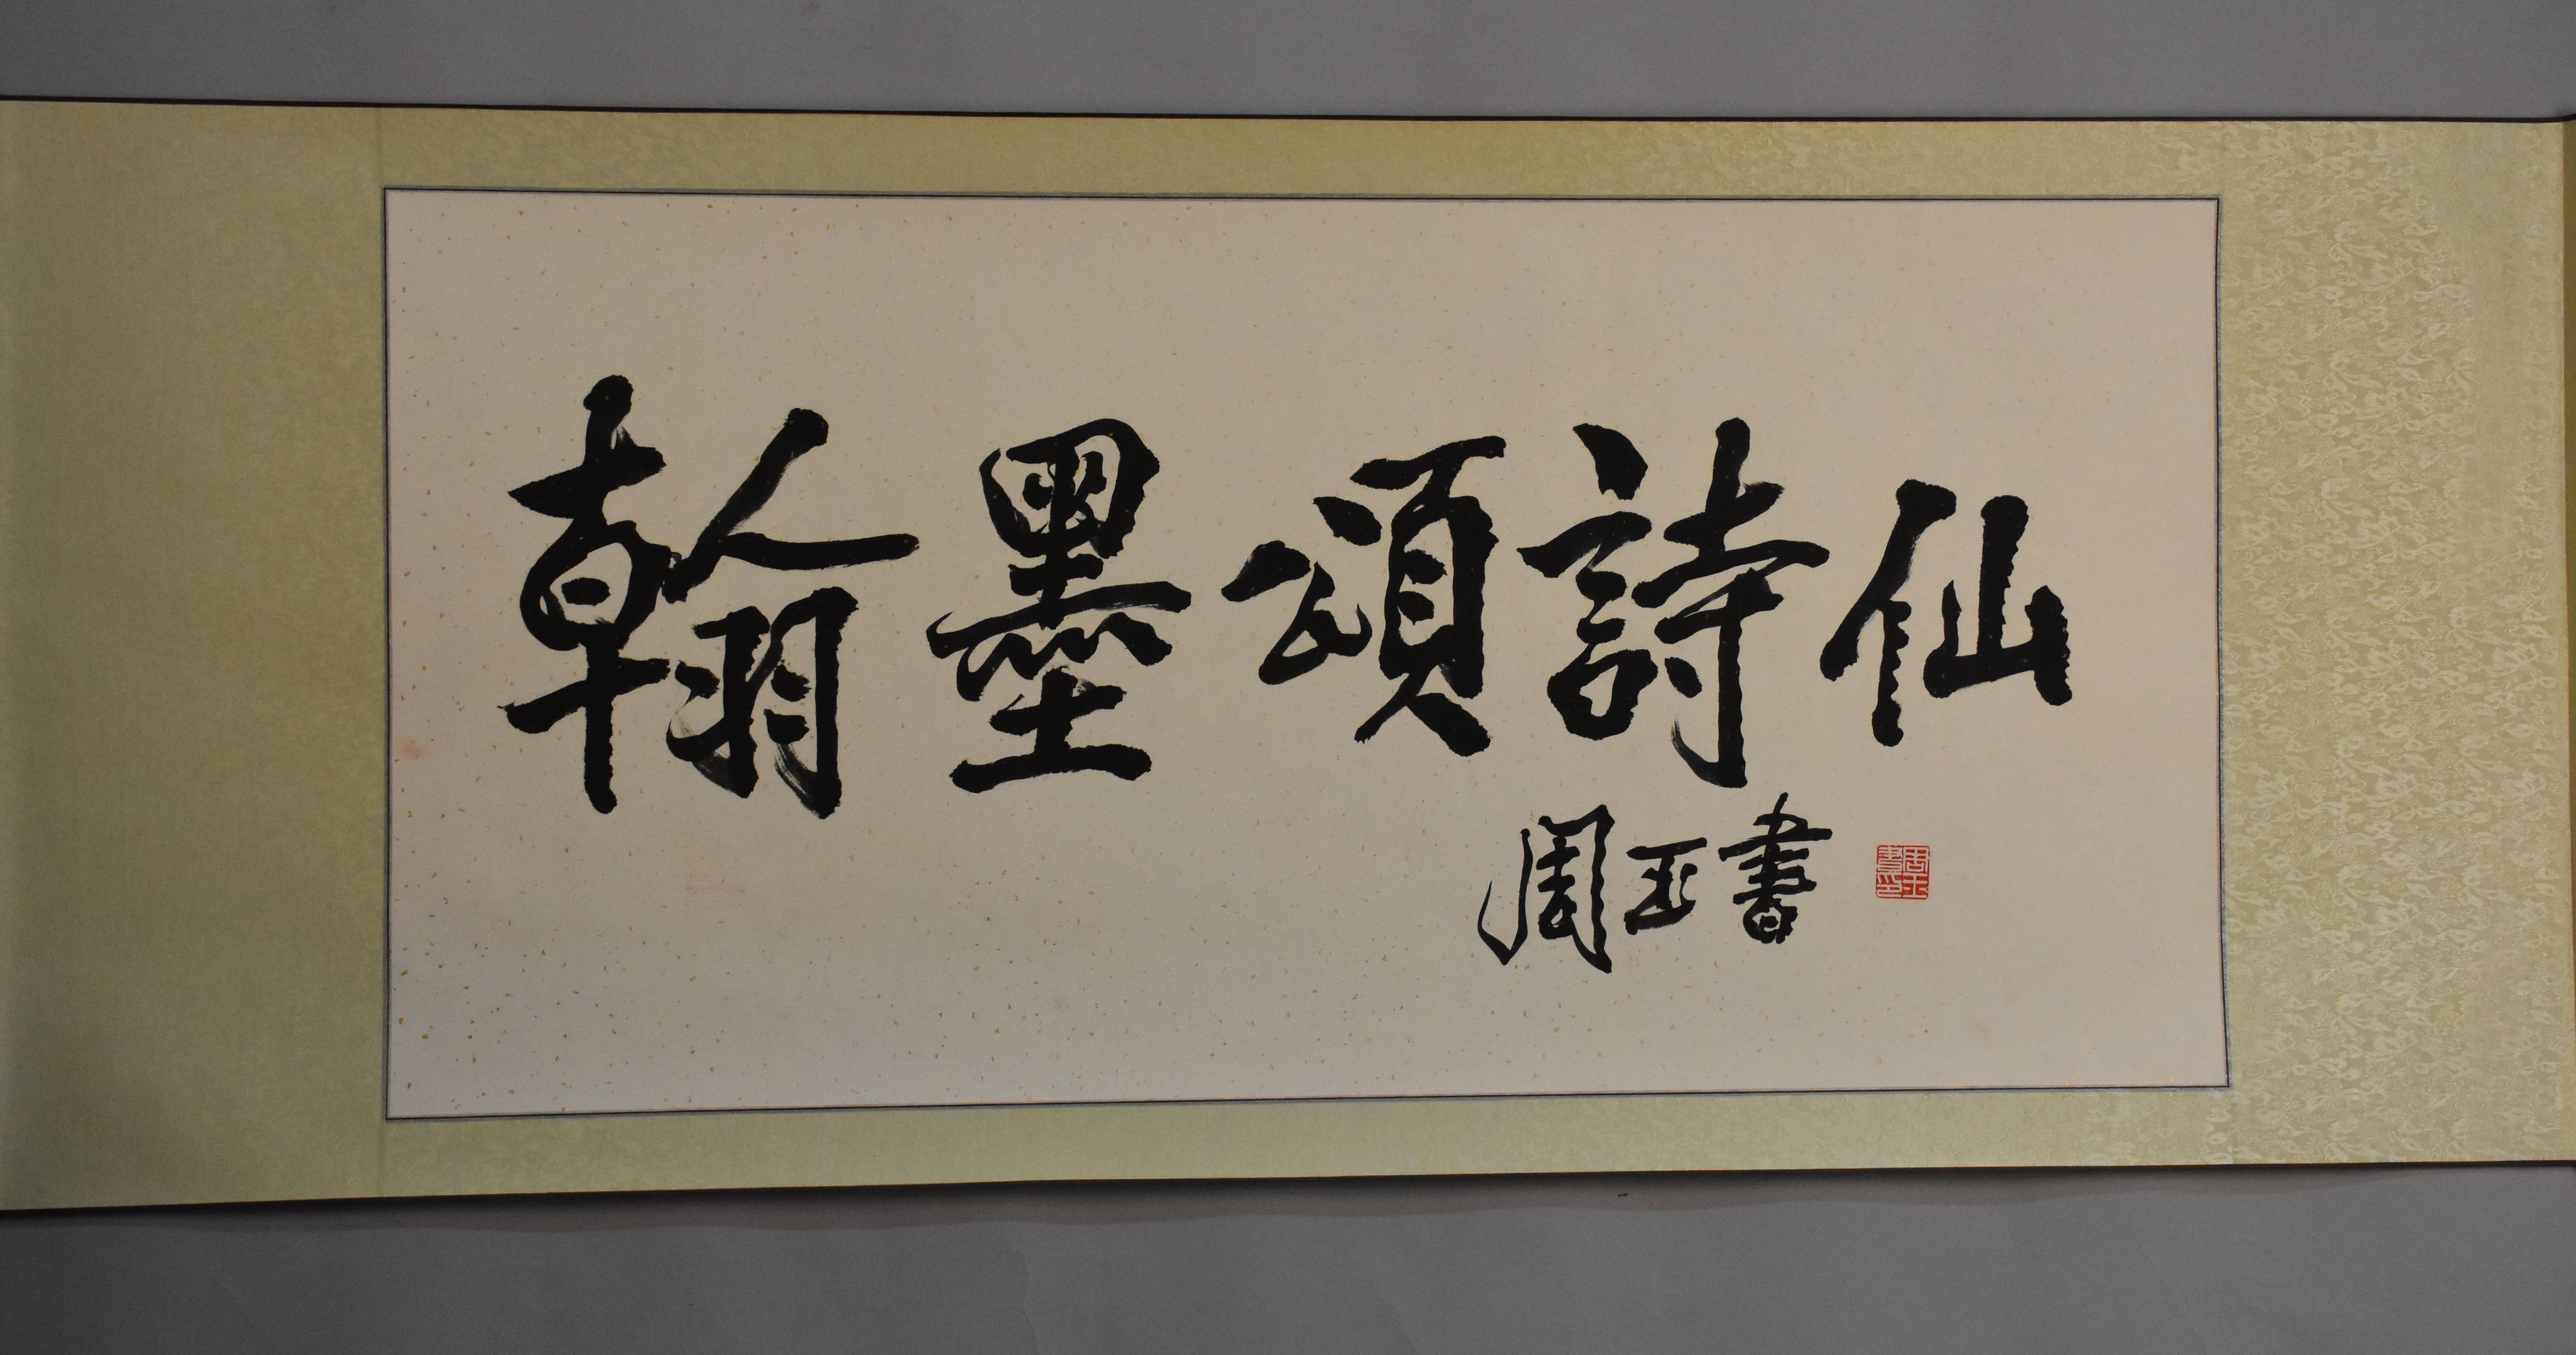 翰墨頌詩仙
周玉書
周玉書印